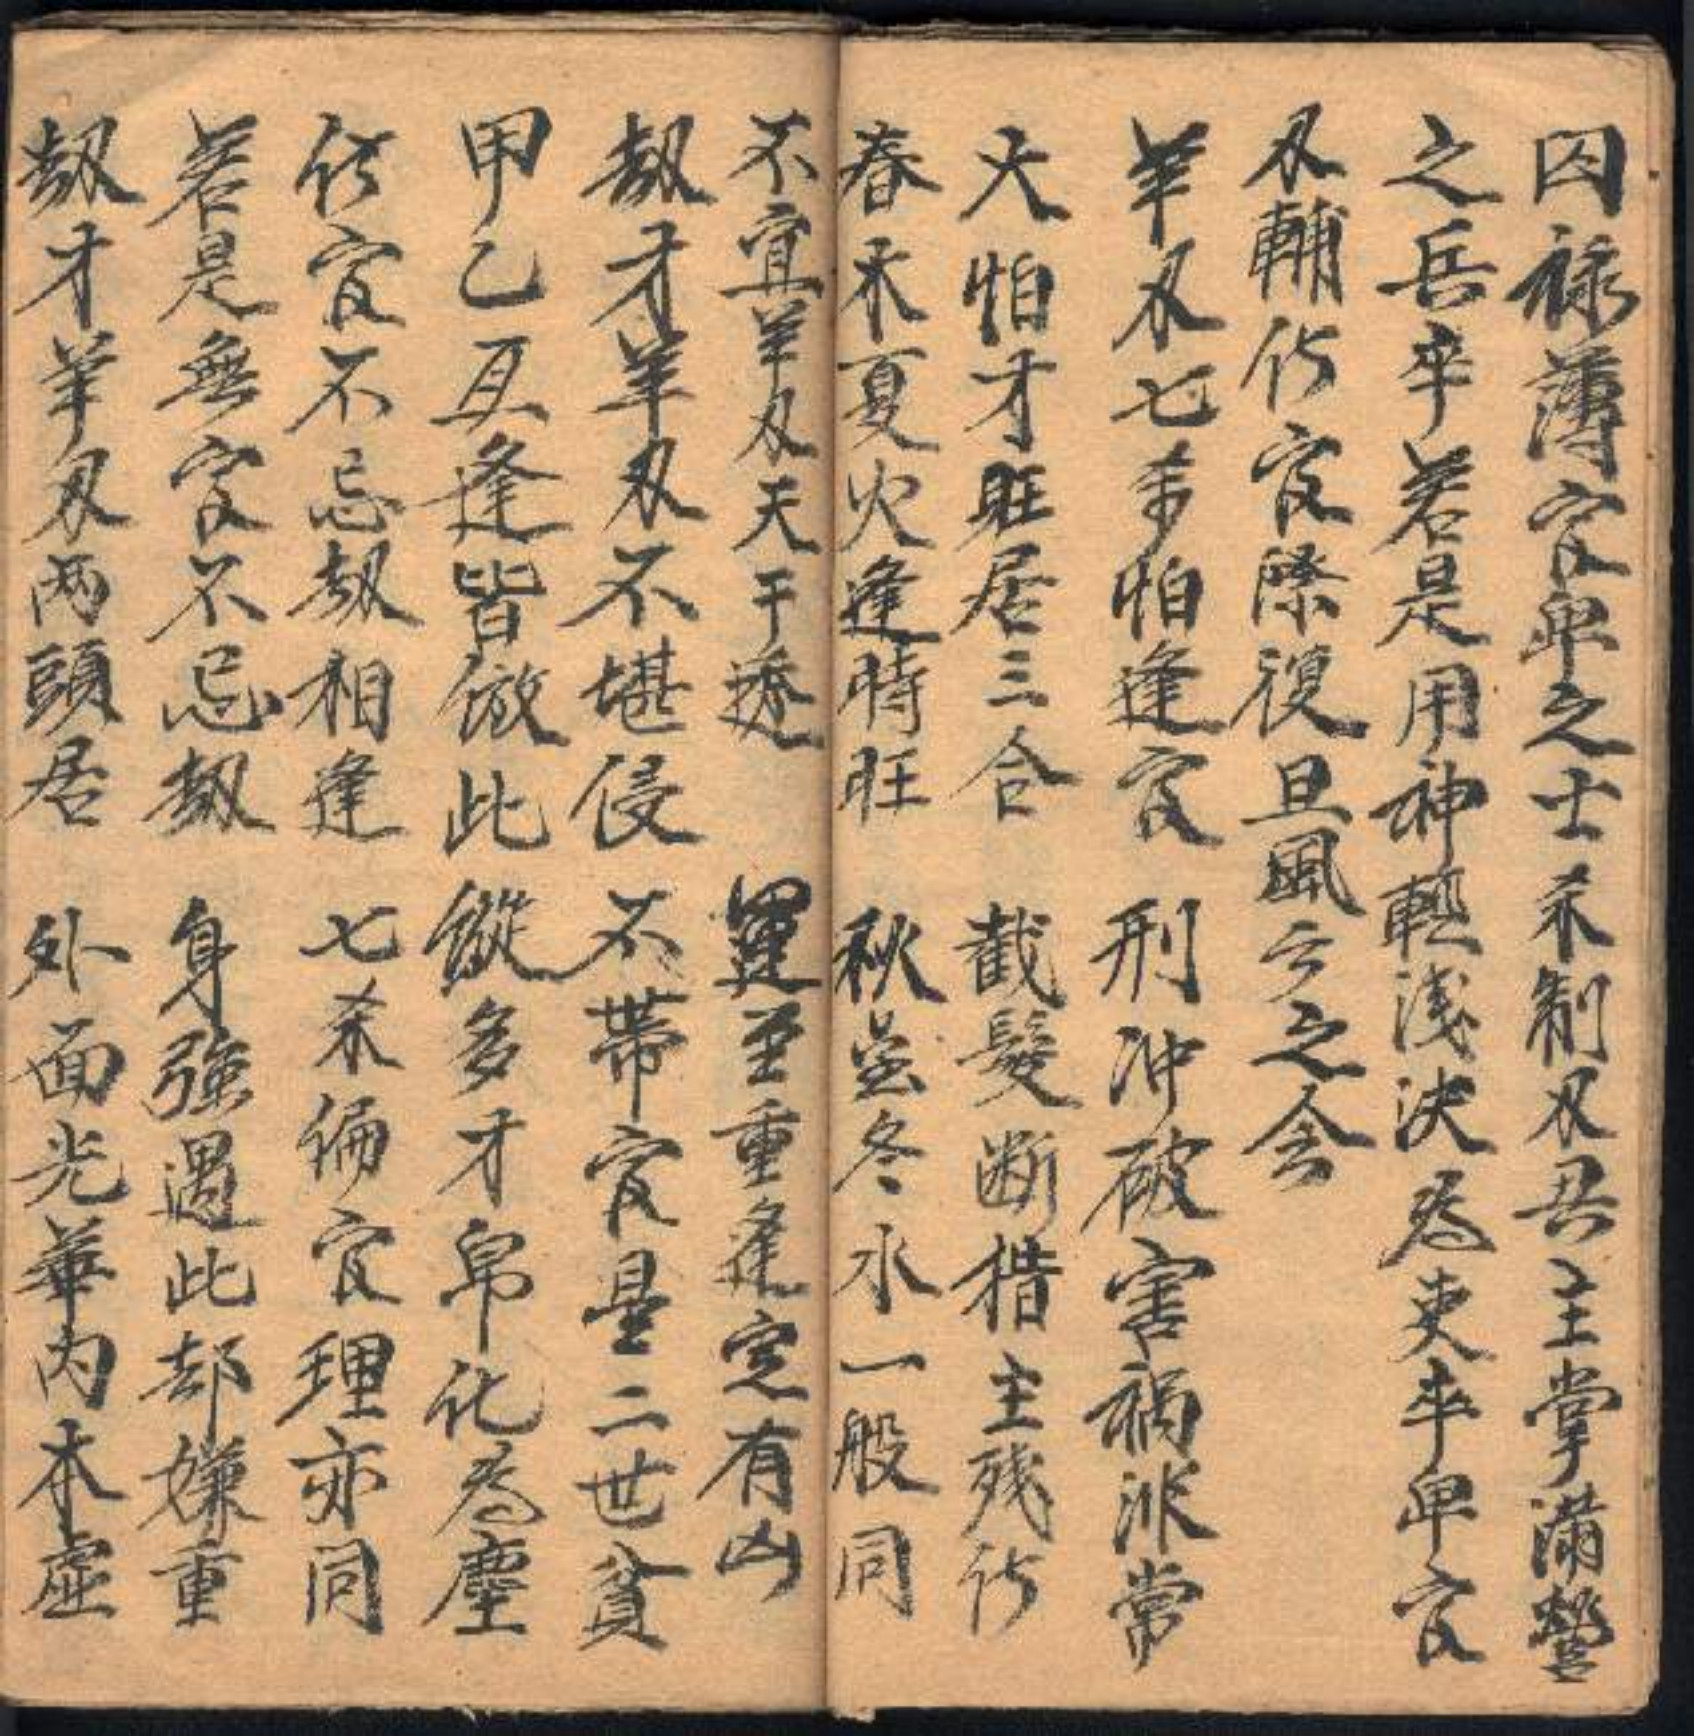 囚祿薄官卑之士杀制刃兵主掌滿營
之兵卒若是用神輕淺決為吏卒卑官
刃輔行官際復旦風云之会
羊刃七杀怕逢官 刑沖破害禍非常
大怕才旺居三合 截髮断楷主残行
春木夏火逢時旺 秋金冬水一般同
不宜羊刃天干透 運至重逢定有凶
劫才羊刃不堪侵 不帶官星二世貧
甲乙互逢皆倣此 縱多才帛化為塵
行官不忌劫相逢 七杀偏官理亦同
若是無官不忌劫 身強遇此却嫌重
劫才羊刃两頭居 外面光華内本虛